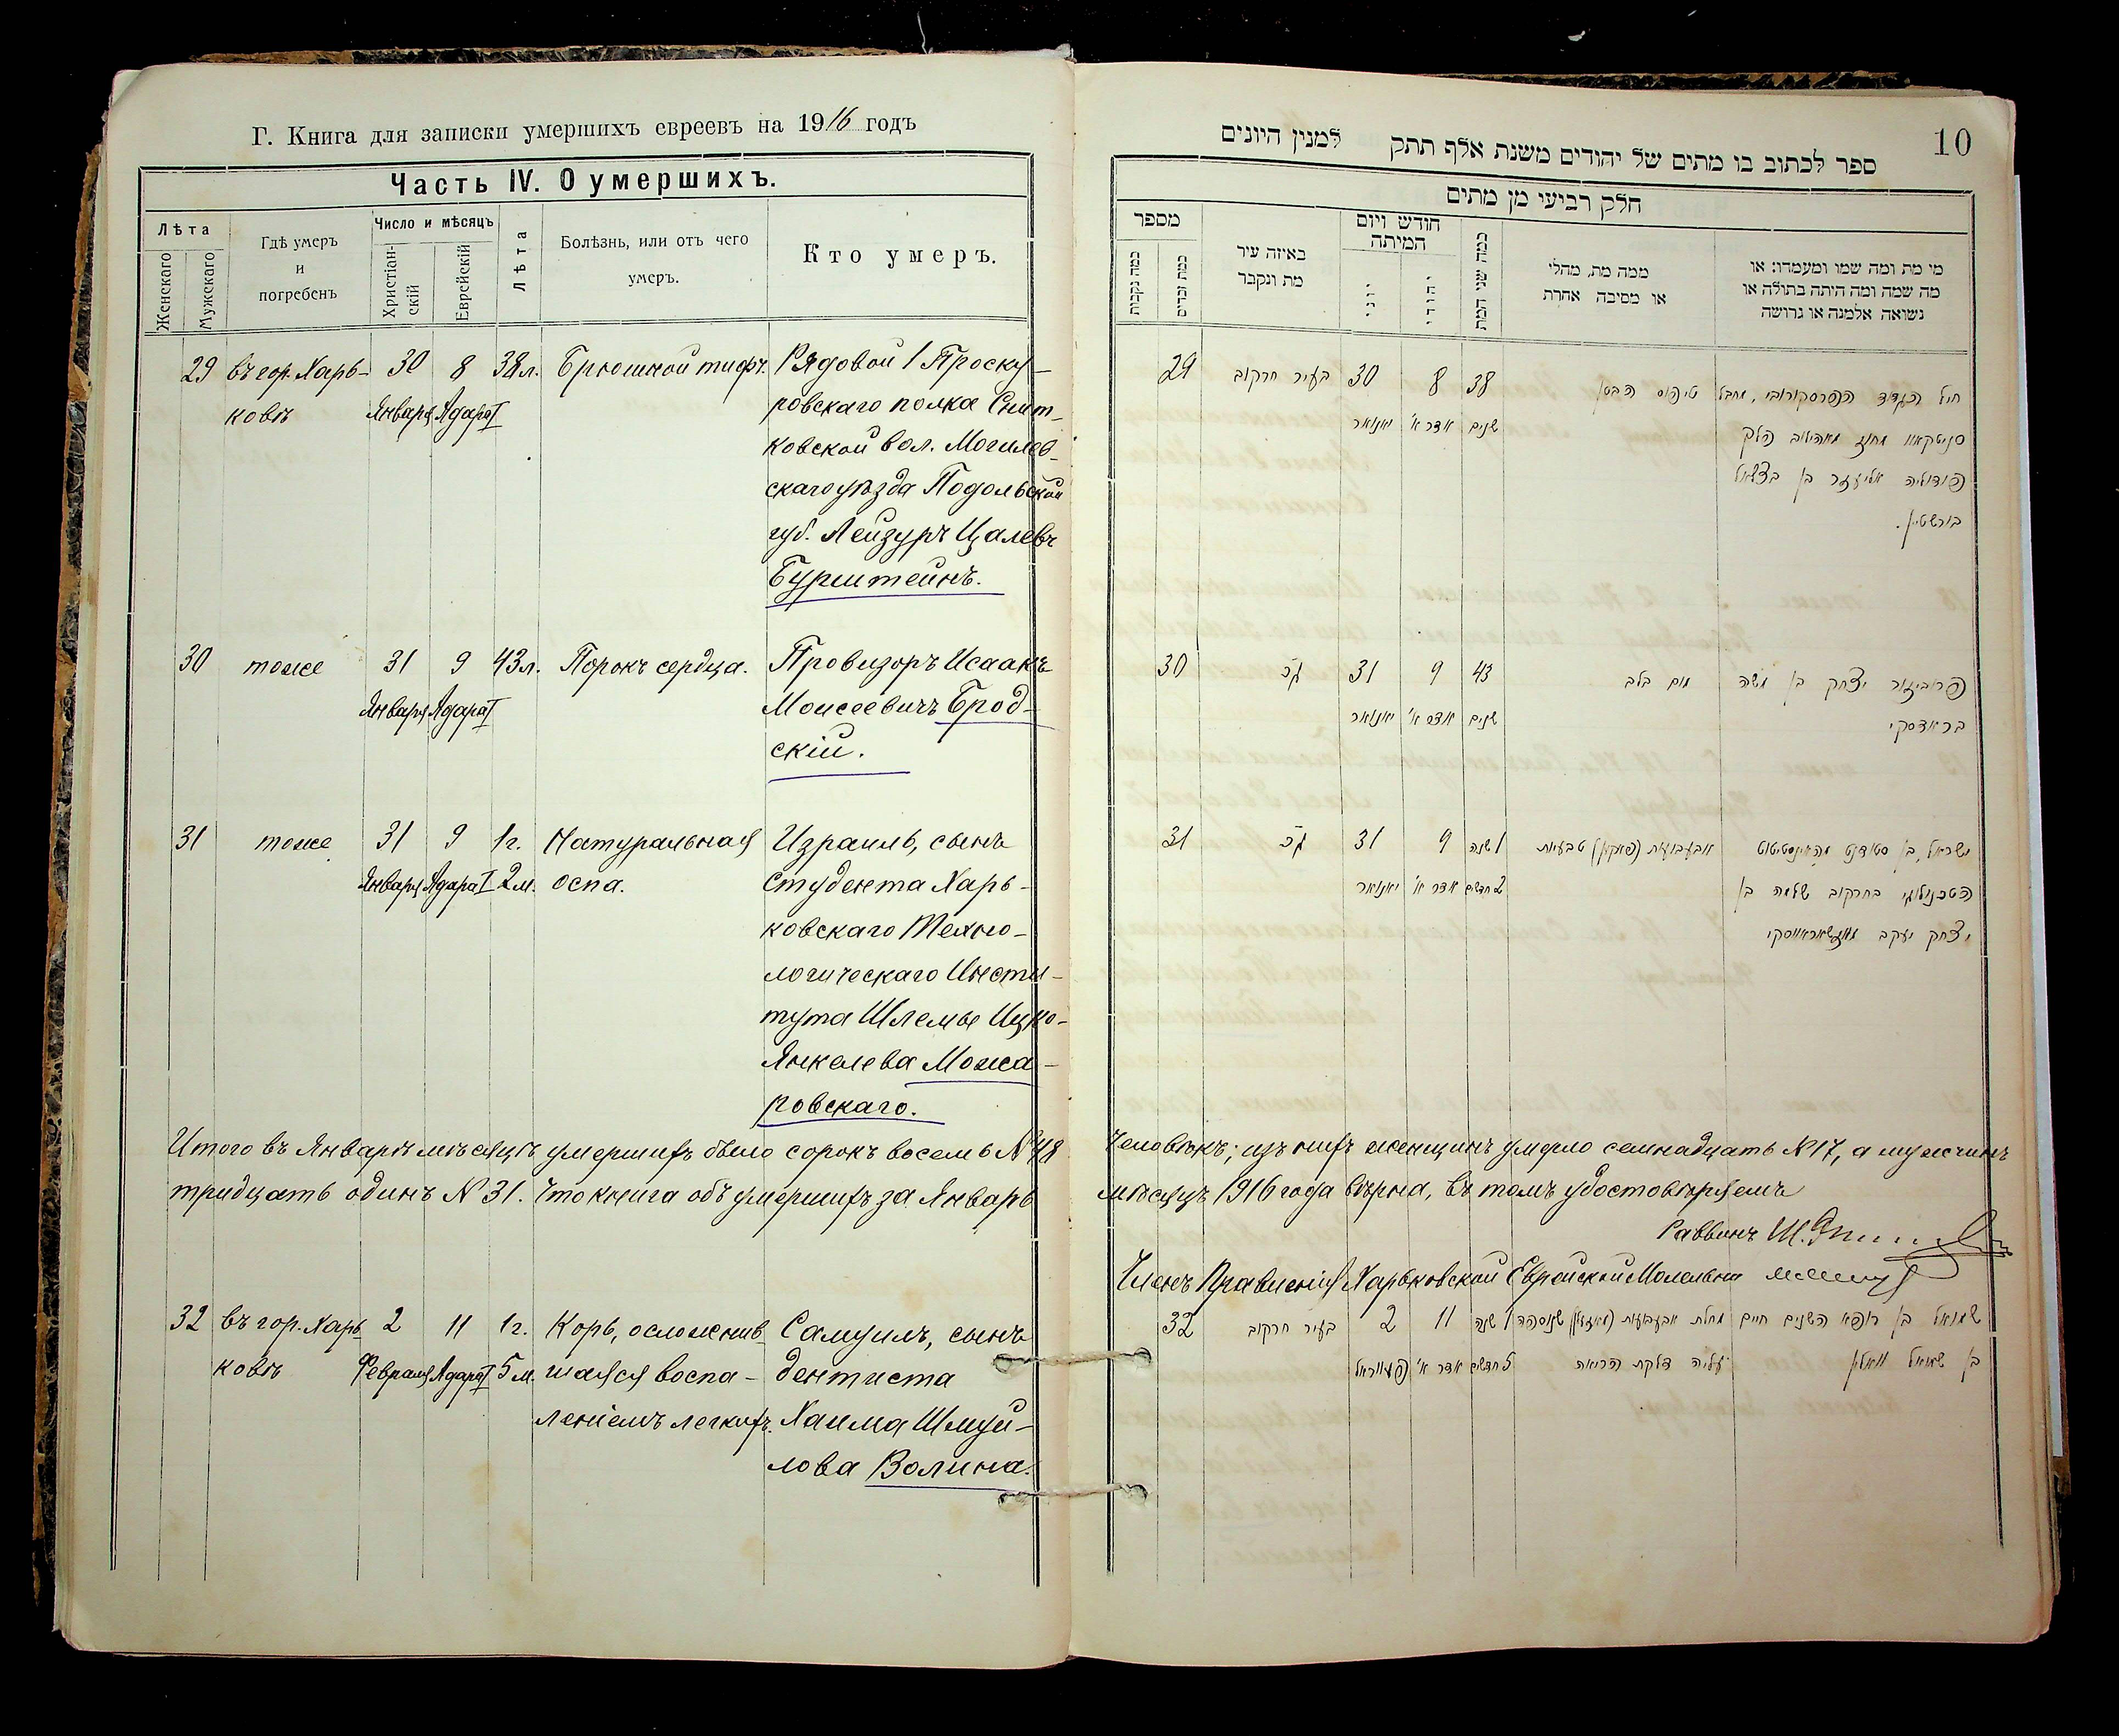 Г. Книга для записки умершихъ евреевъ на 1916 годъ
Часть IV. О умершихъ.
Лѣта
Женскаго
Мужскаго
Гдѣ умеръ
и
погребенъ
Число и мѣсяцъ
Христіан-
скій
Еврейскій
Лѣта
Болѣзнь, или отъ чего
умеръ.
Кто умеръ.
29 въ гор. Харь- 30 8 38 л. Брюшной тифъ. Рядовой 1 Проску-
ковѣ Января Адара I ровскаго полка Снит-
ковской вол. Могилев-
скаго уѣзда Подольской
губ. Лейзуръ Цалевъ
Бурштейнъ.
30 тоже 31 9 43 л. Порокъ сердца. Провизоръ Исаакъ
Января Адара I Моисеевичъ Брод-
скій.
31 тоже 31 9 1 г. Натуральная Израиль, сынъ
Января Адара I 2 м. оспа. студента Харь-
ковскаго Техно-
логическаго Инсти-
тута Шлемы Ицко-
Янкелева Можа-
ровскаго.
Итого въ Январѣ мѣсяцѣ умершихъ было сорокъ восемь № 48
тридцать одинъ № 31. Что книга объ умершихъ за Январь
32 въ гор. Харь 2 11 1 г. Корь, осложнив- Самуилъ, сынъ
ковѣ Февраля Адара I 5 м. шаяся воспа- дентиста
леніемъ легкихъ. Хаима Шмуй-
лова Волина.
10
ספר לכתוב בו מתים של יהודים משנת אלף תתק למנין היונים
חלק רביעי מן מתים
מספר
כמה נקבות
כמה זכרים
באיזה עיר
מת ונקבר
חודש ויום
המיתה
יוני
יהודי
כמה שני המת
ממה מת, מחלי
או מסיבה אחרת
מי מת ומה שמו ומעמדו: או
מה שמה ומה היתה בתולה או
נשואה אלמנה או גרושה
29 בעיר חרקוב 30 8 38 טיפוס הבטן חיל הגדוד הפרוסקורובי, מחבל
יאנואר אדר א' שנים סניטקאוו מחוז מאהילוב פלך
פודוליה אליעזר בן בצלאל
בורשטין.
30 31 9 43 מום בלב פרוביזור יצחק בן משה
יאנואר אדר א' שנים בראדסקי
31 31 9 1 שנה אבעבועות טבעיות ישראל, בן סטודנט מהאינסטיטוט
יאנואר אדר א' 2 חדשים הטכנולוגי בחרקוב שלמה בן
יצחק יעקב
человѣкъ; изъ нихъ женщинъ умерло семнадцать № 17, а мужчинъ
мѣсяцъ 1916 года вѣрна, въ томъ удостовѣряемъ
Раввинъ Ш.
Членъ Правленія Харьковской Еврейской Молельни
32 בעיר חרקוב 2 11 1 שנה מחלת אבעבועות שנוספה שמואל בן רופא השנים חיים
פעווראל אדר א' 5 חדשים עליה דלקת הריאה בן שמואל וואלין